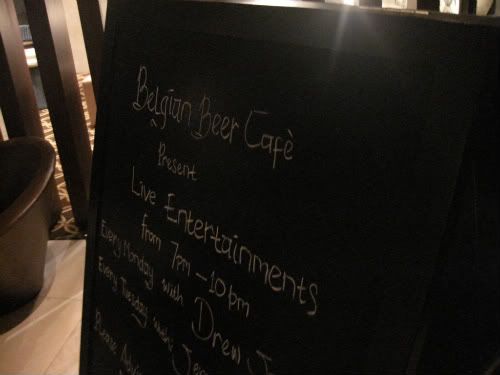 Belgian Beer Cafè
Present
Live Entertainments
from 7pm - 10pm
Every Monday with Drew
Every Tuesday with
Please